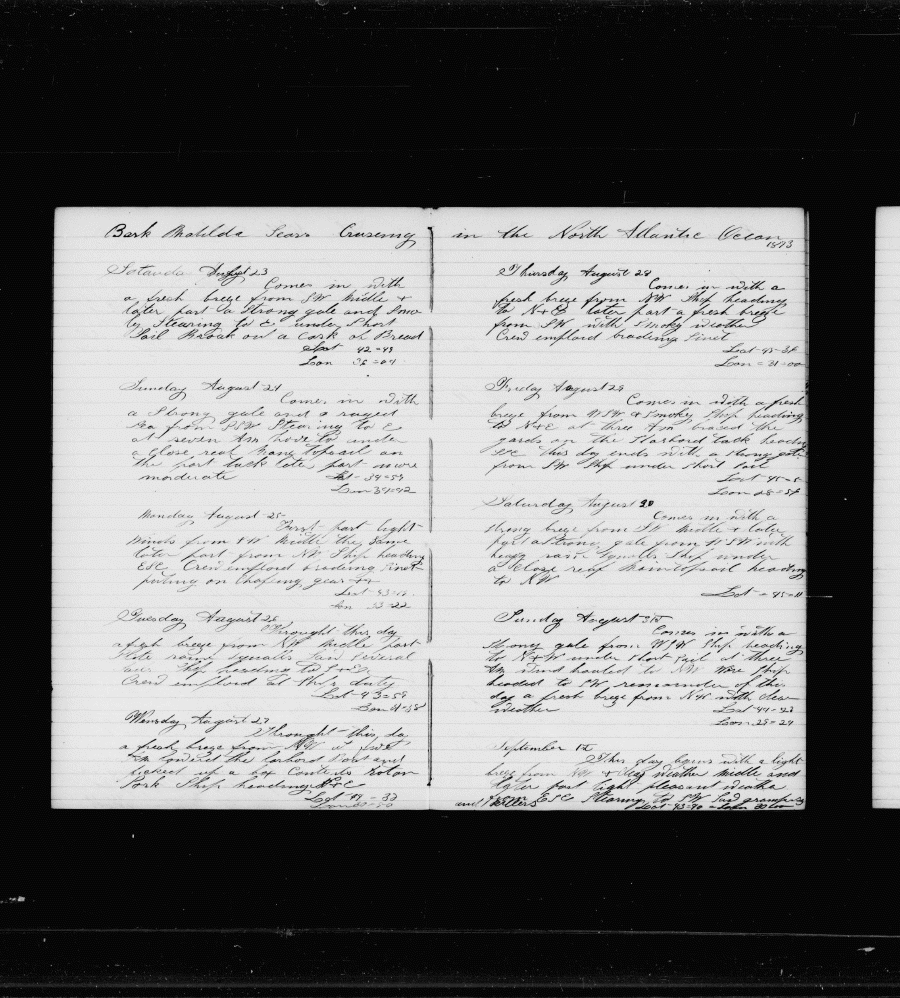 Bark Matilda Sears Cruseing
Satarda August 23
Comes in with
a fresh breze from SW Midle +
later part a Strong gale and Smo
ky Stearing to E under Short
Sail Broak out a Cask of Bread
Lat 42=43
Lon 36=04
Sunday August 24
Comes in with
a Strong gale and a ruged
Sea from SSW Stearing to E
at seven Am hove to under
a Close reef Main topsail on
the port tack late part more
moderate Lat 39=59
Lon 34=42
Monday August 25
First part light
winds from SW Midle the Same
later part from NW Ship heading
ESE Crew emploid brading Sinet
puting on Chafing gear ++
Lat 43=
Lon 33=22
Tuesday August 26
Throught this day
a fresh breze from NW Midle part
rainy Squalls Saw Several
Ship heading to N+E
Crew emploid at Ships duty
Lat 43=59
Lon 31=58
Wensday August 27
Throught this da
a fresh breze from NW at
Am lowered the Larbord boat and
picked up a box Contents roton
Pork Ship heading N+E
Lat 44 = 32
in the North Atlantic Ocean
1873
Thursday August 28
Comes in with a
fresh breze from NW Ship heading
to N+E later part a fresh breze
from SW with Smoky weather
Crew emploid brading Sinet
Lat 45=34
Lon = 31=00
Friday August 29
Comes in with a fresh
breze from WSW + Smoky Ship heading
to N+E at three Am braced the
yards on the Starbord tack heading
SSE this day ends with a Strong gale
from SW Ship under Short Sail
Lat 45=5
Lon 28=54
Saturday August 30
Comes in with a
Strong breze from SW Midle + later
part a Strong gale from WSW with
heavy rain Squalls Ship under
a Close reef Maintopsail heading
to NW
Lat = 45=11
Sunday August 31st
Comes in with a
Strong gale from WSW Ship heading
to N+W under Short Sail at three
Am wind hauled to NW Wore Ship
headed to SW remainder of the
day a fresh breze from NW with clear
weather Lat 44=23
Lon=29=24
September 1st
This day begins with a light
breze from NW + clear weather Midle and
later part light pleasant weather
from ESE Stearing to SW Saw grampuses
and Killers Lat=43=40